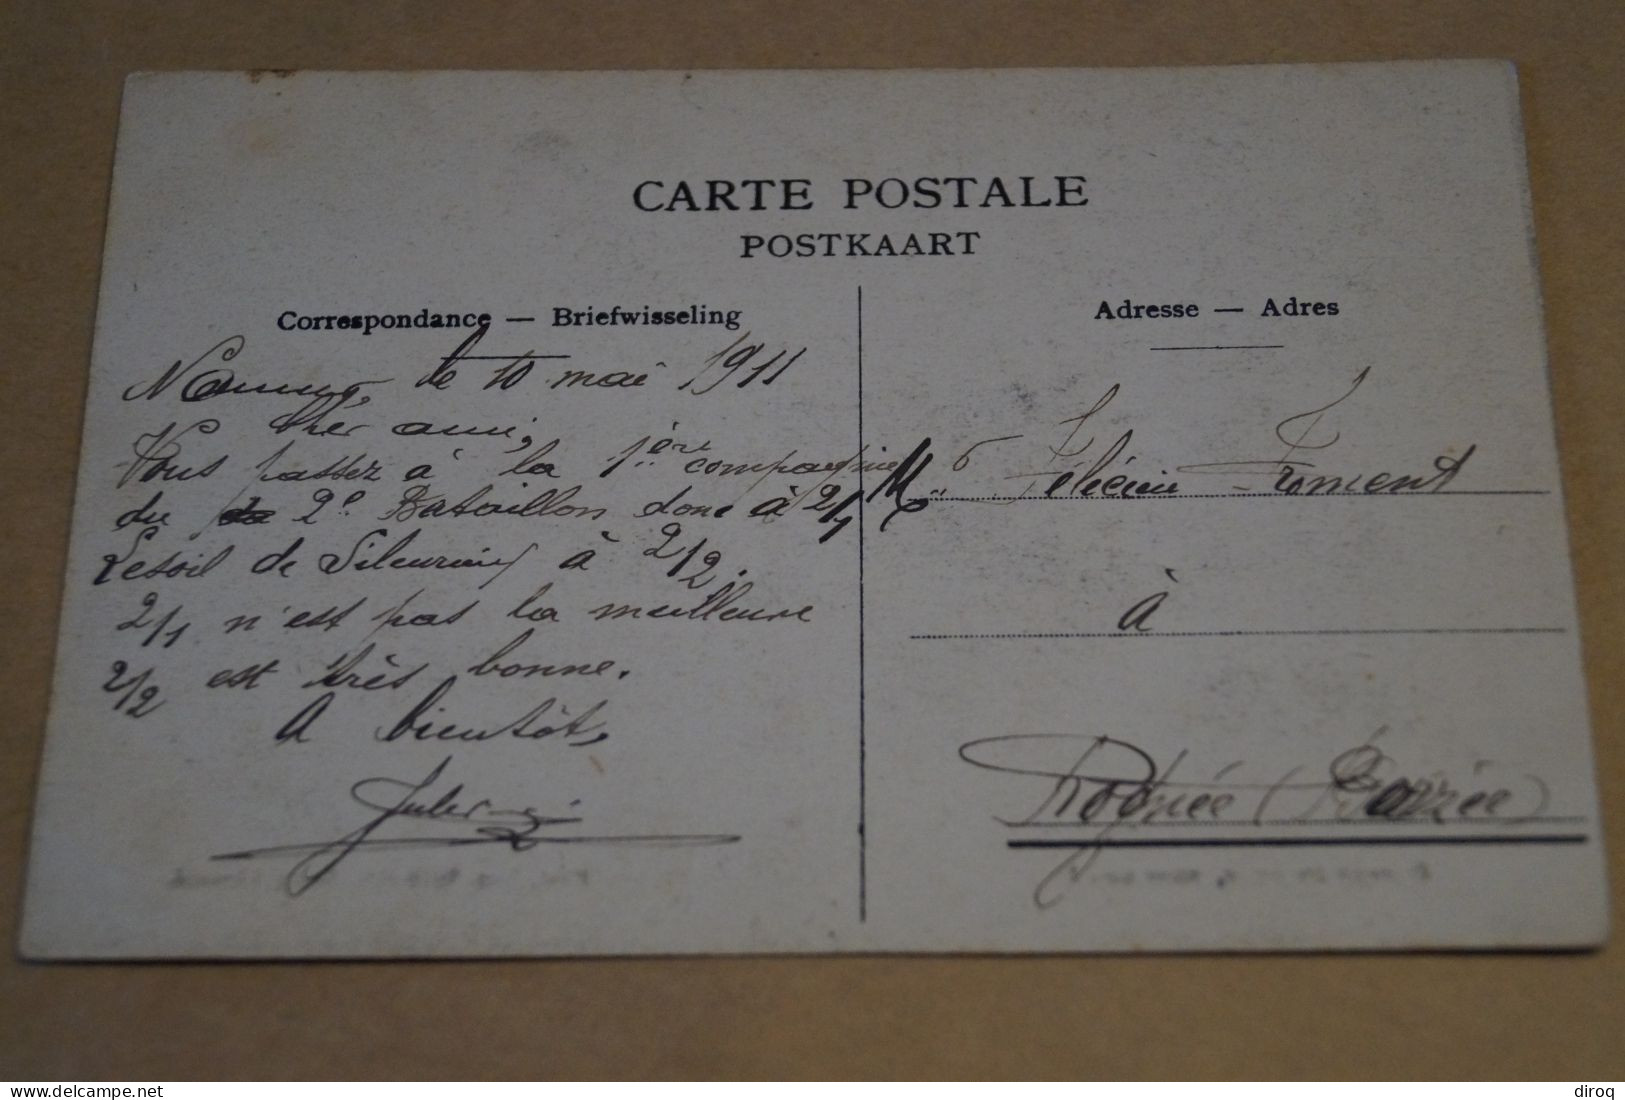 CARTE POSTALE
POSTKAART
Correspondance — Briefwisseling
Namur, le 10 mai 1911
Cher ami,
Vous passez à la 1ère compagnie
du 2e Bataillon donc à 2/1
Lesoil de Silenrieux à 2/2.
2/1 n'est pas la meilleure
2/2 est très bonne.
A bientôt,
Adresse — Adres
Félicien Froment
à
Rognée
diroq